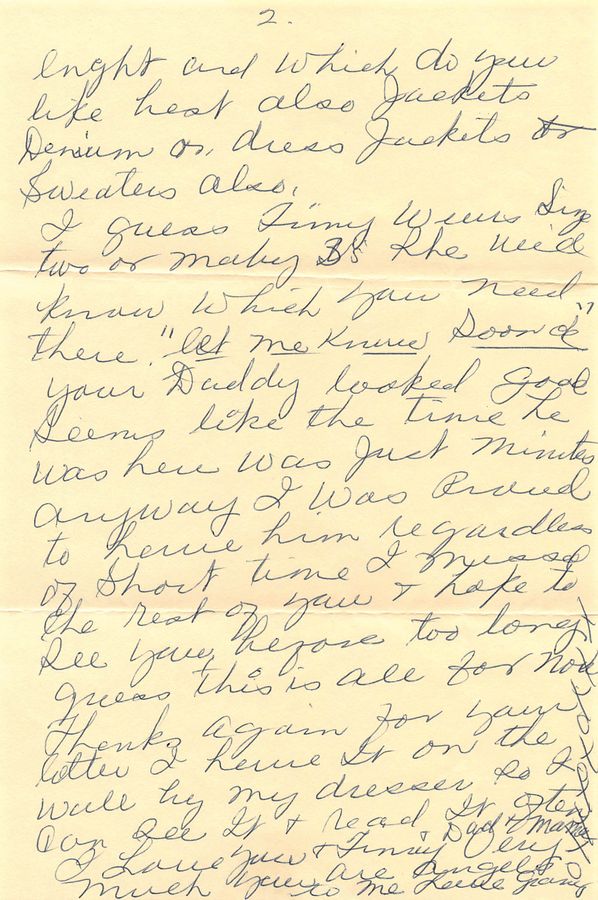 2.
lnght and which do you
like best also Jackets
Denium or, dress Jackets or
Sweaters also.
I guess Timmy Wears Size
two or maby 3s She wied
know which you need
there. "let me Know Soon ok"
your Daddy looked good
Seems like the time he
was here was Just minutes
anyway I was Proud
to have him regardless
of Short time I missed
the rest of you + hope to
See you before too long
guess this is all for now
Thanks again for your
letter I have It on the
wall by my dresser so I
Can see It + read It often
I Love you + Timmy, Dad + Mama Very
much you are Angels
to me Love Granny